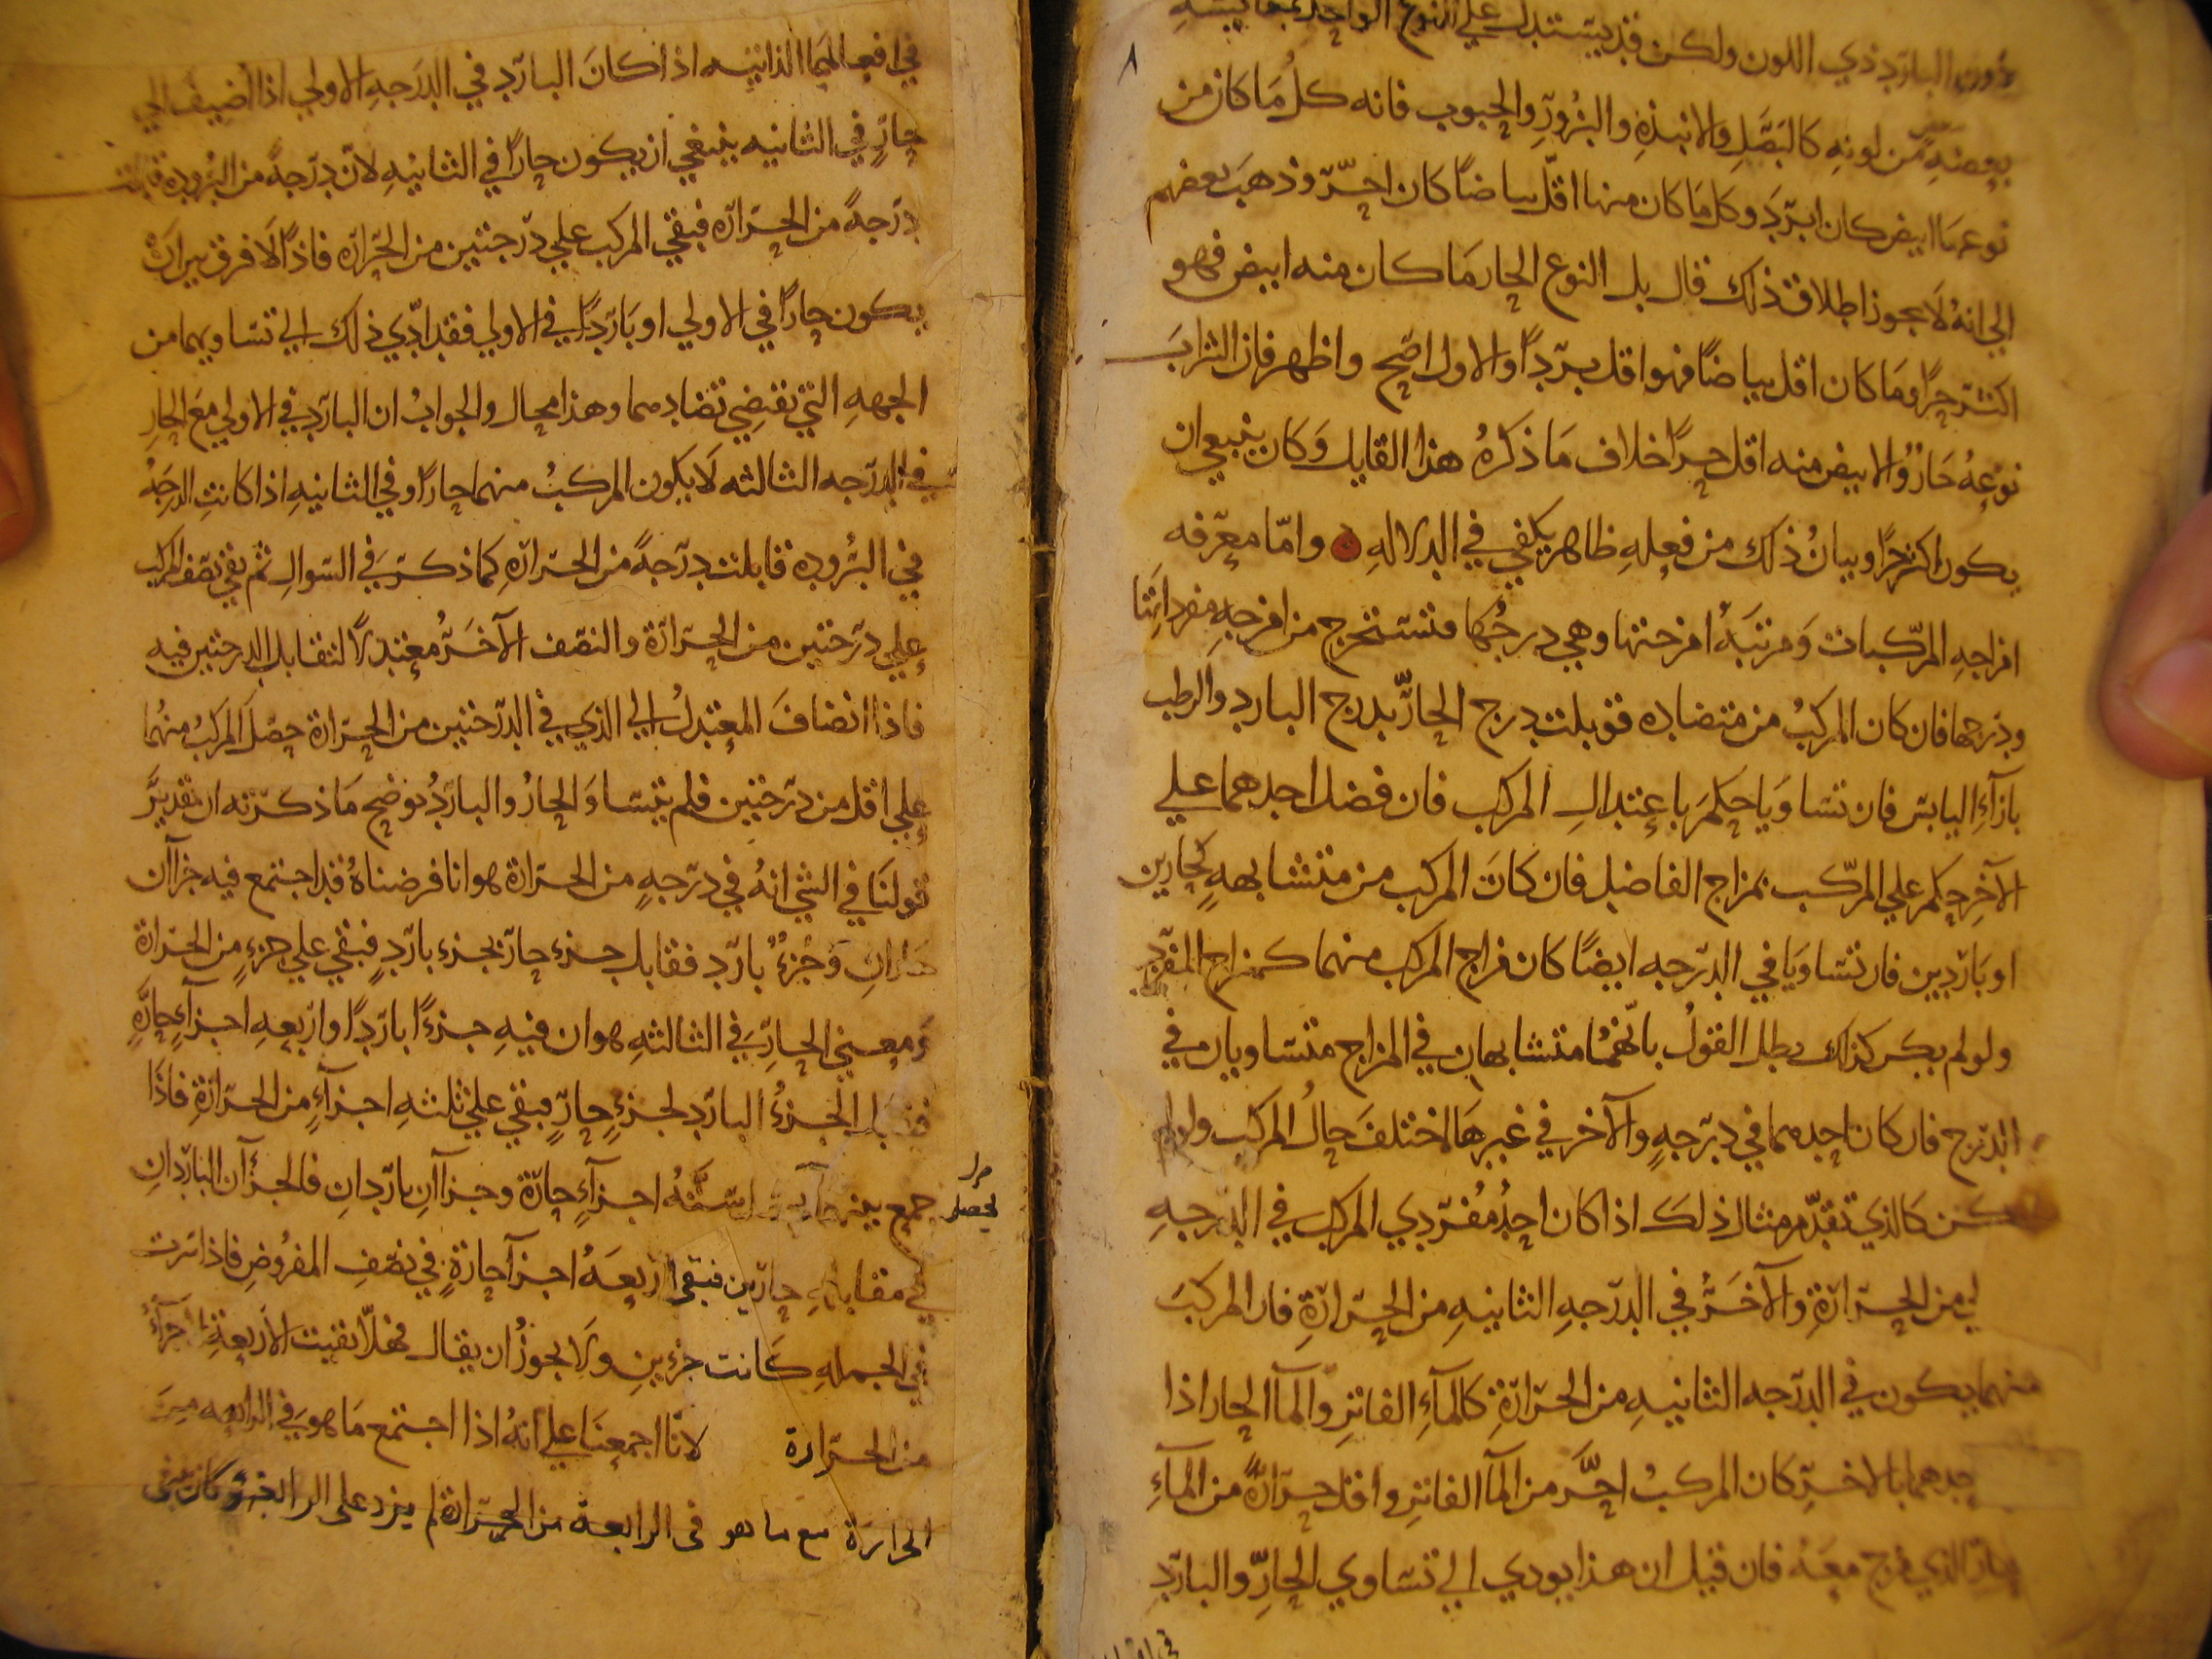 لاورد البارد ذي اللون ولكن قد يستدل علي النوع الواحد بمقايسة
بعضه من لونه كالبصل والانبذه والبزور والحبوب فانه كل ما كان من
نوعها ابيض كان ابرد وكل ما كان منها اقل بياضا كان احر وذهب بعضهم
الي انه لا يجوز اطلاق ذلك قال بل النوع الحار ما كان منه ابيض فهو
اكثر حرا وما كان اقل بياضا فهو اقل بردا والاول اصح واظهر فان الشراب
نوعه حار والابيض منه اقل حرا خلاف ما ذكره هذا القايل وكان ينبغي ان
يكون اكثر حرا وبيان ذلك من فعله ظاهر يكفي في الدلاله واما معرفه
امزاجه المركبات ومرتبه امزجتها وهي درجها فتستخرج من امزجه مفرداتها
ودرجها فان كان المركب من متضاده قوبلت درج الحار بدرج البارد والرطب
بازآء اليابس فان تساويا حكم باعتدال المركب فان فضل احدهما علي
الآخر حكم علي المركب بمزاج الفاضل فان كان المركب من متشابهه كحارين
او باردين فان تساويا في الدرجه ايضا كان مزاج المركب منهما كمزاج المفرد
ولو لم يكن كذلك بطل القول بانهما متشابهان في المزاج متساويان في
الدرج فان كان احدهما في درجه والآخر في غيرها اختلف حال المركب ولم
يكن كالذي تقدم مثال ذلك اذا كان احد مفردي المركب في الدرجه
لي من الحرارة والآخر في الدرجه الثانيه من الحرارة فان المركب
منهما يكون في الدرجه الثانيه من الحرارة كالمآء الفاتر والمآ الحار اذا
حدهما بالاخر كان المركب احر من المآ الفاتر واقل حرارة من المآء
الحار الذي مزج معه فان قيل ان هذا يودي الي تساوي الحار والبارد
في افعالهما الذاتيه اذا كان البارد في الدرجه الاولي اذا اضيف الي
حار في الثانيه ينبغي ان يكون حارا في الثانيه لان درجة من البروده قابلت
درجة من الحرارة فبقي المركب علي درجتين من الحرارة فاذا لا فرق بين ان
يكون حارا في الاولي او باردا في الاولي فقد ادي ذلك الي تساويهما من
الجهه التي تقتضي تضادهما وهذا محال والجواب ان البارد في الاولي مع الحار
في الدرجه الثالثه لا يكون المركب منهما حارا في الثانيه اذا كانت الدرجة
في البروده قابلت درجة من الحراره كما ذكر في السوال ثم بقي نصف المركب
علي درجتين من الحرارة والنصف الآخر معتدلا لتقابل الدرجتين فيه
فاذا انضاف المعتدل الي الذي في الدرجتين من الحرارة حصل المركب منهما
علي اقل من درجتين فلم يتساو الحار والبارد يوضح ما ذكرته ان تقدير
قولنا في الشي انه في درجه من الحرارة هو انا فرضناه قد اجتمع فيه جزآن
حاران وجزء بارد فقابل جزء حار بجزء بارد فبقي علي جزء من الحرارة
ومعني الحار في الثالثه هو ان فيه جزءا باردا واربعه اجزآء حارة
فقابل الجزء البارد لجزء حار فبقي علي ثلثه اجزآء من الحرارة فاذا
جمع بينهما ستة اجزآء حارة وجزآن باردان فالجزآن الباردان
لحصل
في مقابله حارين فبقى اربعة اجزآ حارة في نصف المفروض فاذا
في الجمله كانت جزءين ولا يجوز ان يقال فهلا بقيت الاربعة اجزآء
من الحرارة لانا اجمعنا علي انه اذا اجتمع ما هو في الرابعه من
الحرارة مع ما هو فى الرابعة من الحرارة لم يزد على الرابعة وكان